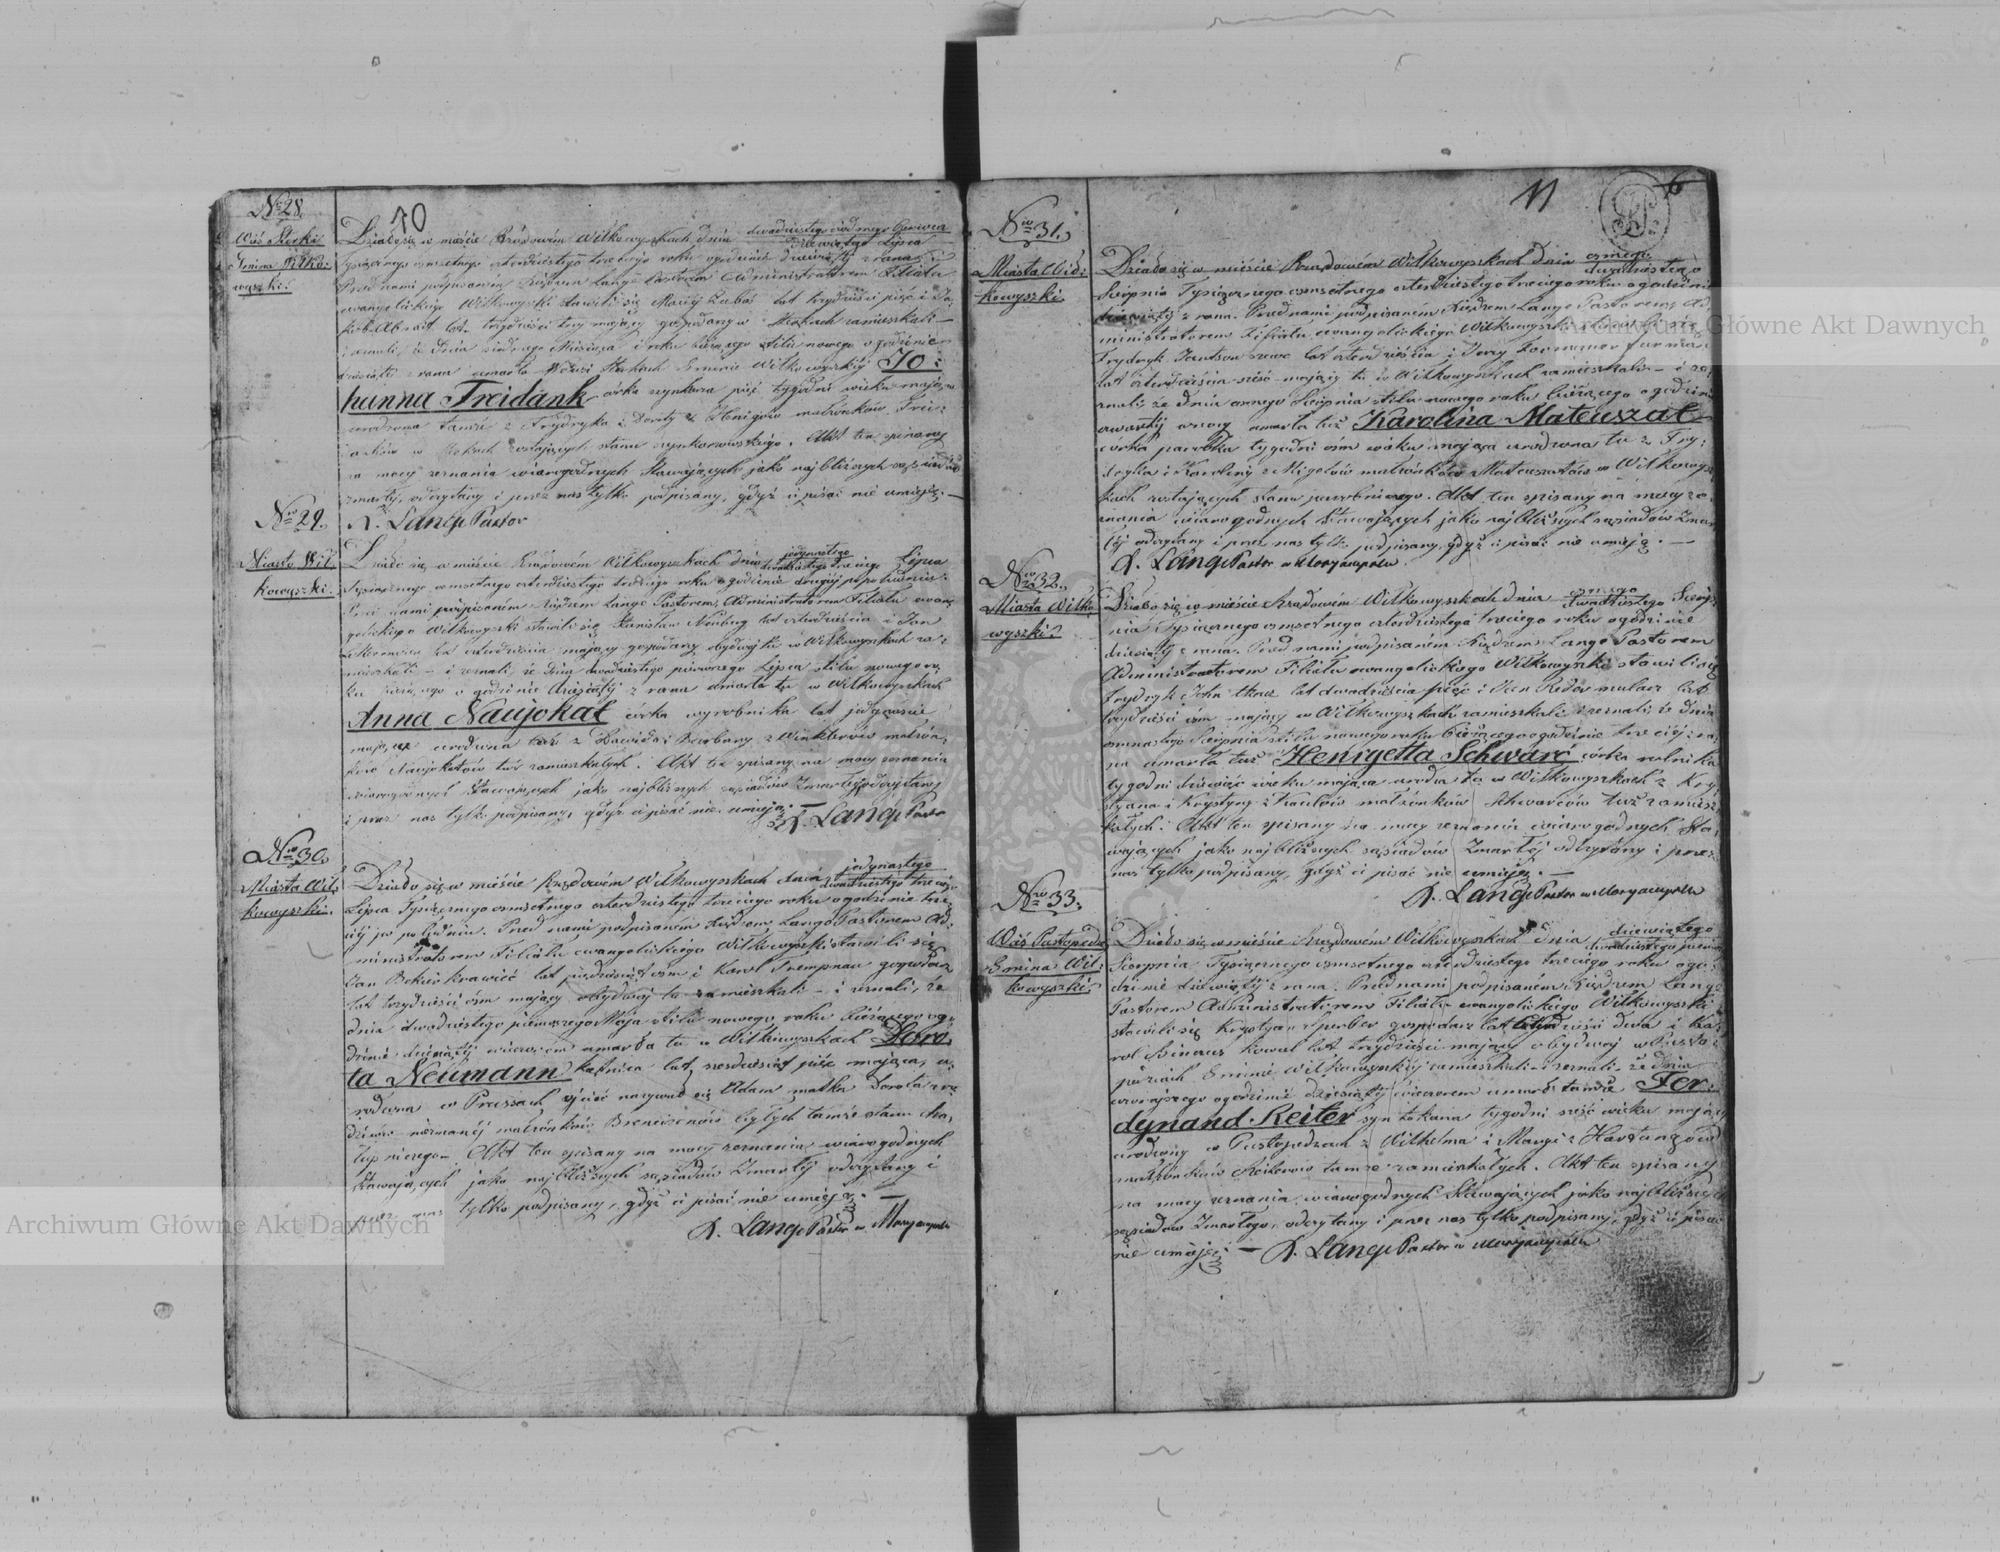 10
No 28.
Wieś Sterki
Gmina Wilko:
wyszki.
Działo się w mieście Rządowém Wiłkowyszkach dnia dwudziestego siódmego Czerwca
dziewiątego Lipca
Tysiącznego osmsetnego czterdziestego trzeciego roku o godzinie dziewiątej z rana
Przed nami podpisaném Księdzem Lange Pastorem Administratorem Filiału
ewangelickiego Wiłkowyszki stawili się Maciej lat trzydzieści pięć i Ja:
kób lat trzydzieści trzy mający gospodarze w Sterkach zamieszkali —
i zeznali, że dnia siódmego Miesiąca i roku bieżącego stilu nowego o godzinie
dziesiątej z rana umarła w Wsi Sterkach Gminie Wiłkowyskiéj Jo:
hanna Freidank córka czynszara pięć tygodni wieku mająca
urodzona tamże z Frydryka i Doroty z małżonków Frei:
danków w Sterkach zostających stanu czynszowniskiego. Akt ten spisany
na mocy zeznania wiarogodnych Stawających jako najbliższych sąsiadów
zmarłéj, odczytany i przez nas tylko podpisany, gdyż ci pisać nie umieją. —
A. Lange Pastor
No 29.
Miasto Wił:
kowyszki.
Działo się w mieście Rządowém Wiłkowyszkach dnia jedynastego
dwudziestego trzeciego Lipca
Tysiącznego osmsetnego czterdziestego trzeciego roku o godzinie drugiéj po południu:
Przed nami podpisaném Księdzem Lange Pastorem, Administratorem Filiału ewan:
gelickiego Wiłkowyszki stawili się Stanisław Neuburg lat czterdzieścia i Jan
lat czterdzieścia mający gospodarze obydwaj tu w Wiłkowyszkach za:
mieszkali — i zeznali, że dnia dwudziestego pierwszego Lipca stilu nowego ro:
ku bieżącego o godzinie dziesiątéj z rana umarła tu w Wiłkowyszkach
Anna Naujokat córka wyrobnika lat jedynaście
mająca urodzona tuż z Dawida i Barbary z Winklerów małżon:
ków Naujokatów tuż zamieszkałych. Akt ten spisany na mocy zeznania
wiarogodnych Stawających jako najbliższych sąsiadów Zmarłéj odczytany
i przez nas tylko podpisany, gdyż ci pisać nie umieją. —
A. Lange Pastor
No 30.
Miasta Wił:
kowyszki.
Działo się w mieście Rządowém Wiłkowyszkach dnia jedynastego
dwudziestego trzeciego
Lipca Tysiącznego osmsetnego czterdziestego trzeciego roku o godzinie trze:
ciéj po południu. Przed nami podpisaném Księdzem Lange Pastorem Ad:
ministratorem Filiału ewangelickiego Wiłkowyszki stawili się
Jan krawiec lat pięćdziesiąt osm i Karol Trempnau gospodarz
lat trzydzieści osm mający obydwaj tu zamieszkali — i zeznali, że
dnia dwudziestego pierwszego Maja stilu nowego roku bieżącego o go:
dzinie dziewiątéj wieczorem umarła tu w Wiłkowyszkach Doro:
ta Neumann kątnica lat sześdziesiąt pięć mająca, u:
rodzona w Prussach ojciec nazywał się Adam, matka Dorota zro:
dziców nieznanéj małżonków bytych tamże stanu cha:
łupniczego — Akt ten spisany na mocy zeznania wiarogodnych
Stawających jako najbliższych sąsiadów Zmarłéj odczytany i
przez nas tylko podpisany, gdyż ci pisać nie umieją. —
A. Lange Pastor w Maryampolu
11
6
No 31.
Miasta Wił:
kowyszki.
Działo się w mieście Rządowém Wiłkowyszkach dnia osmego
dwudziestego
Sierpnia Tysiącznego osmsetnego czterdziestego trzeciego roku o godzinie
dziewiątéj z rana. Przed nami podpisaném Księdzem Lange Pastorem Ad:
ministratorem Filiału ewangelickiego Wiłkowyszki stawili się
Frydryk szewc lat czterdzieścia i Jerzy furman
lat czterdzieścia sześć mający tu w Wiłkowyszkach zamieszkali — i ze:
znali, że dnia osmego Sierpnia stilu nowego roku bieżącego o godzinie
czwartéj z rana umarła tuż Karolina Mateuszat
córka parobka tygodni osm wieku mająca urodzona tu z Fry:
dryka i Karoliny z Migelów małżonków Mateuszatów w Wiłkowysz:
kach zostających stanu parobniczego. Akt ten spisany na mocy ze:
znania wiarogodnych Stawających jako najbliższych sąsiadów Zmar:
łéj odczytany i przez nas tylko podpisany, gdyż ci pisać nie umieją. —
A. Lange Pastor w Maryampolu
No 32.
Miasta Wiłko:
wyszki.
Działo się w mieście Rządowém Wiłkowyszkach dnia osmego
dwudziestego Sierp:
nia Tysiącznego osmsetnego czterdziestego trzeciego roku o godzinie
dziesiątéj z rana. Przed nami podpisaném Księdzem Lange Pastorem
Administratorem Filiału ewangelickiego Wiłkowyszki stawili się
Frydryk John tkacz lat dwadzieścia pięć i Jan Reder mularz lat
trzydzieści osm mający w Wiłkowyszkach zamieszkali i zeznali, że dnia
osmnastego Sierpnia stilu nowego roku bieżącego o godzinie trzeciéj z ra:
na umarła tuż Henryetta Schwarc córka rolnika
tygodni dziewięć wieku mająca urodzona tu w Wiłkowyszkach z Kry:
styana i Krystyny z małżonków Schwarców tuż zamiesz:
kałych. Akt ten spisany na mocy zeznania wiarogodnych Sta:
wających jako najbliższych sąsiadów Zmarłéj odczytany i przez
nas tylko podpisany, gdyż ci pisać nie umieją. —
A. Lange Pastor w Maryampolu
No 33.
Wieś Pustopedzie
Gmina Wił:
kowyszki.
Działo się w mieście Rządowém Wiłkowyszkach dnia dziewiątego
dwudziestego pierwszego
Sierpnia Tysiącznego osmsetnego czterdziestego trzeciego roku o go:
dzinie dziewiątéj z rana. Przed nami podpisaném Księdzem Lange
Pastorem Administratorem Filiału ewangelickiego Wiłkowyszki
stawili się Krystyan Sperber gospodarz lat dwa i Ka:
rol kowal lat trzydzieści mający obydwaj w Pusto:
pedziach Gminie Wiłkowyskiéj zamieszkali — i zeznali, że dnia
wczorajszego o godzinie dziesiątéj wieczorem umarł tamże Fer:
dynand Reiter syn tygodni sześć wieku mający
urodzony w Pustopedziach z Wilhelma i Maryi z Hartungów
małżonków Reiterów tamże zamieszkałych. Akt ten spisany
na mocy zeznania wiarogodnych Stawających jako najbliższych
sąsiadów Zmarłego, odczytany i przez nas tylko podpisany, gdyż ci pisać
nie umieją. — A. Lange Pastor w Maryampolu
Archiwum Główne Akt Dawnych
Archiwum Główne Akt Dawnych